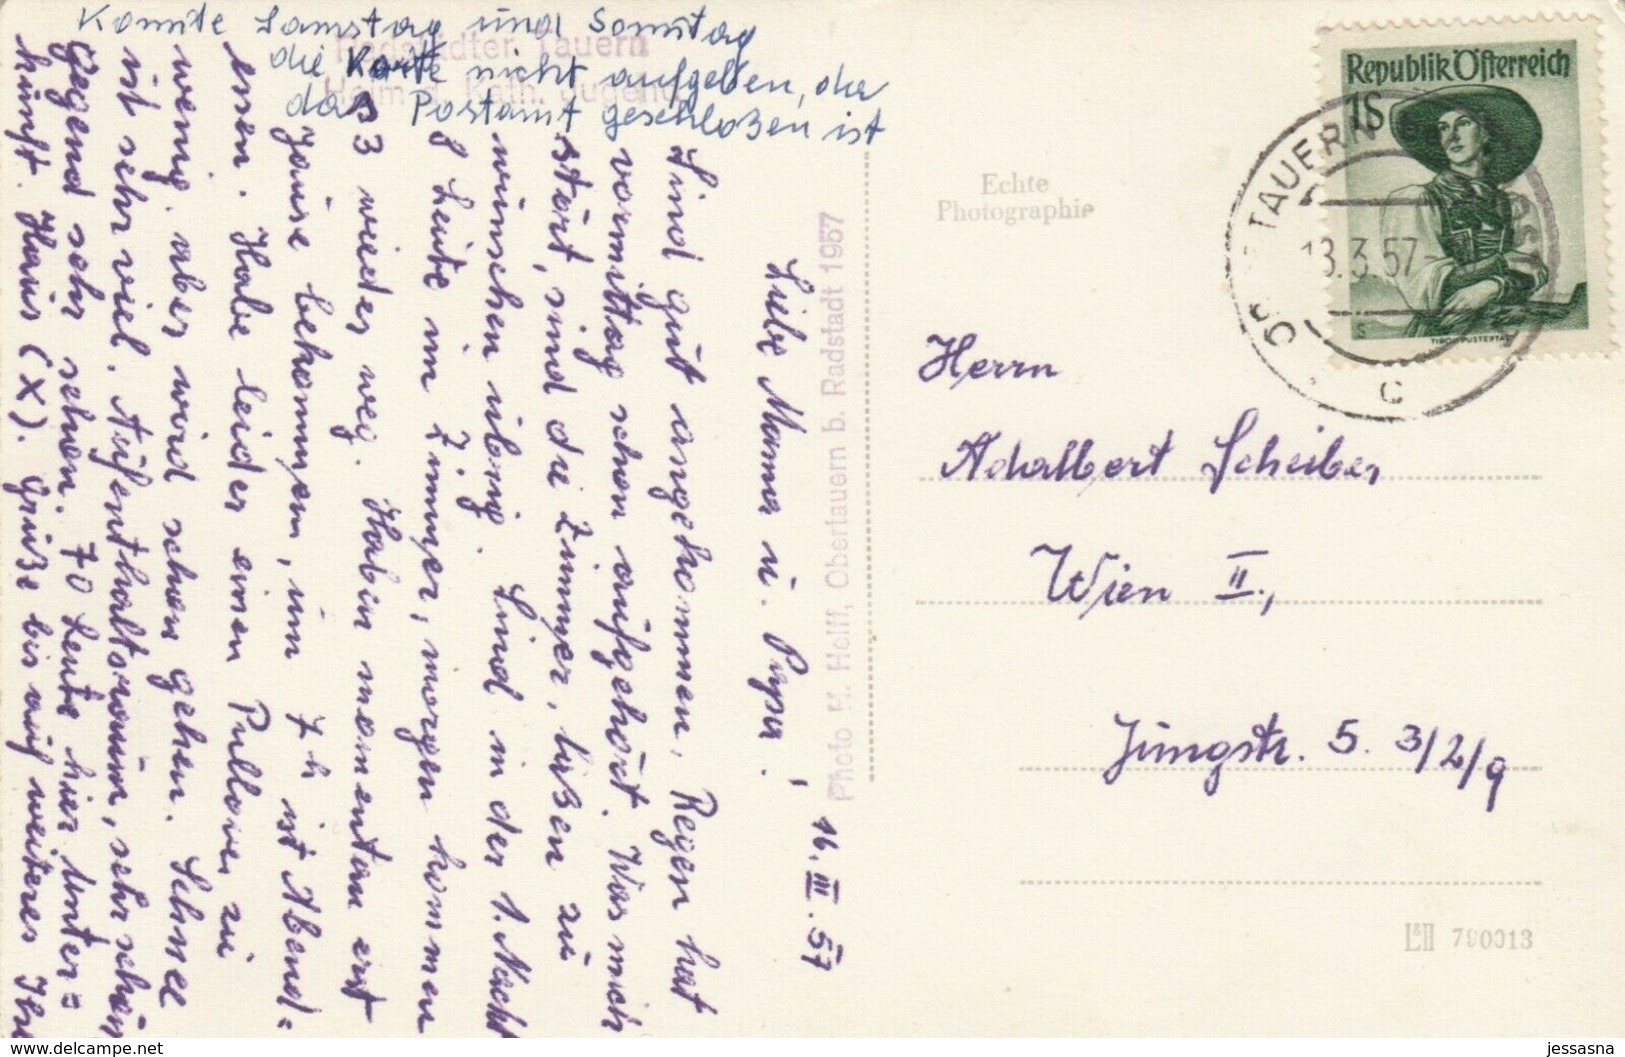 Konnte Samstag und Sonntag
die Karte nicht aufgeben, da
das Postamt geschloßen ist
Radstädter Tauern
Heim d. Kath. Jugend
16. III. 57
Liebe Mama u. Papa!
Sind gut angekommen, Regen hat
vormittag schon aufgehört. Was mich
stört, sind die Zimmer, lißen zu
wünschen übrig. Sind in der 1. Nacht
8 Leute im Zimmer, morgen kommen
3 wieder weg. Habin momentan erst
Jause bekommen, um 7h ist Abend=
essen. Habe leider einen Pullover zu
wenig, aber wird schon gehen. Schnee
ist sehr viel. Aufenthaltsraum, sehr schön
Gegend sehr schön. 70 Leute hier Unter=
künft. Haus (X). Grüße bis auf weiteres Ihr
Photo H. Holff, Obertauern b. Radstadt 1957
Echte
Photographie
Republik Österreich
1S
TIROL, PUSTERTAL
TAUERN
13.3.57
C
Herrn
Adalbert Scheiber
Wien II.,
Jungstr. 5. 3/2/9
L&H 780013
jessasna